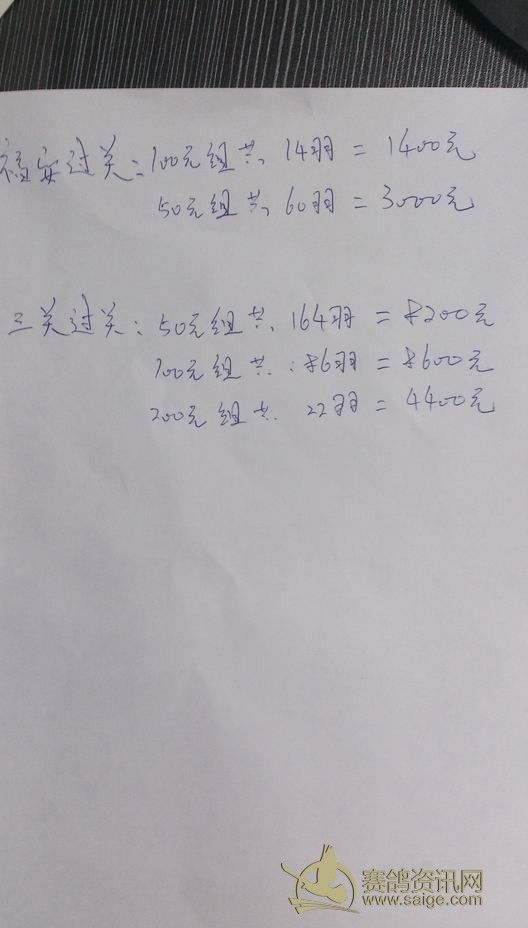 福安过关：100元组共、14羽=1400元
50元组共、60羽=3000元
三关过关：50元组共、164羽=8200元
100元组共：86羽=8600元
200元组共、22羽=4400元
赛鸽资讯网
www.saige.com